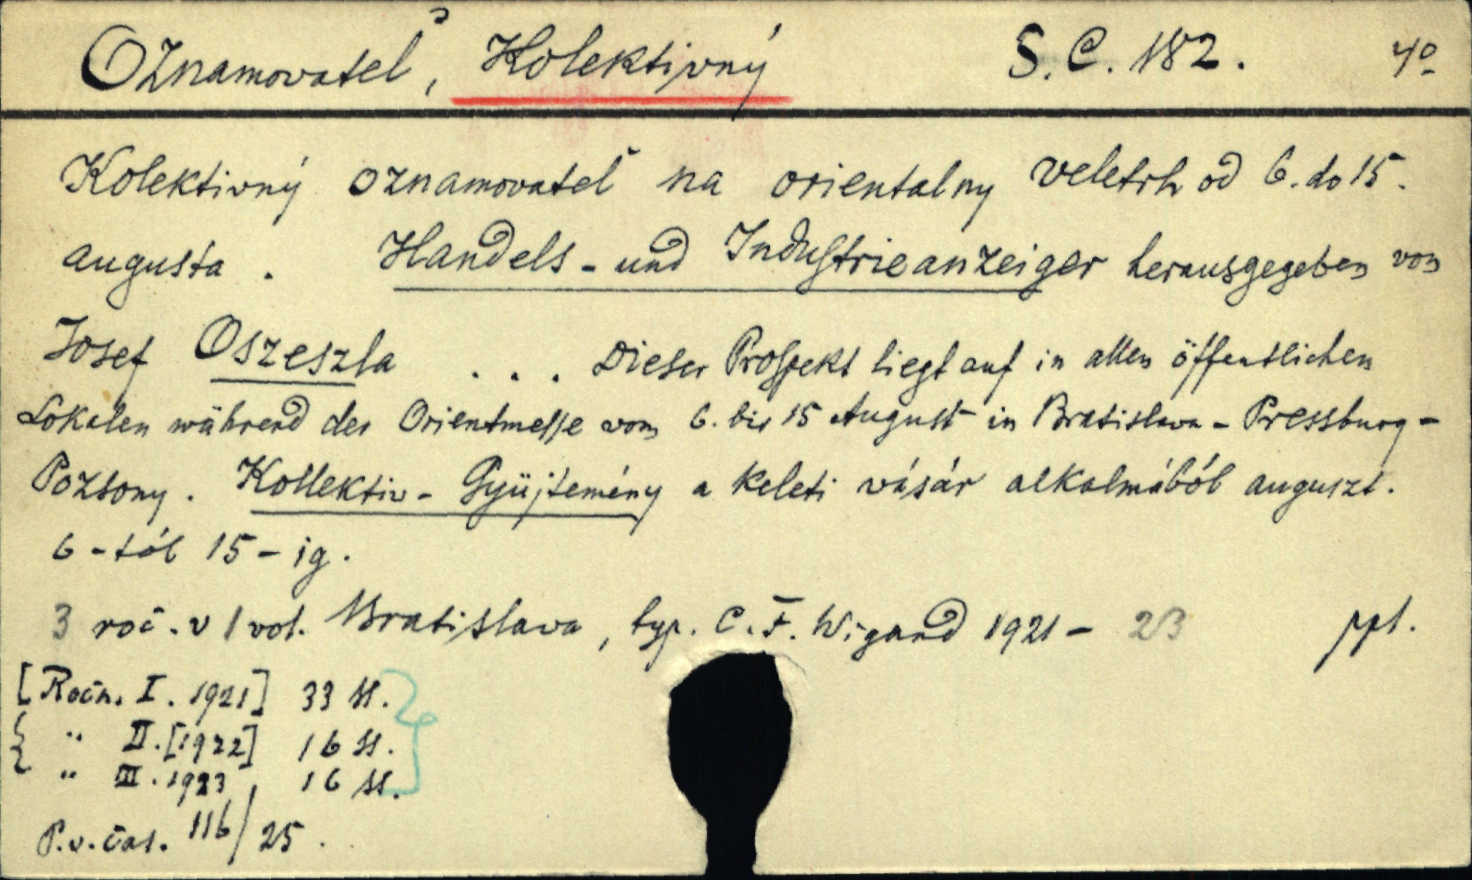 Oznamovateľ, Kolektivný S.C. 182. 4º
Kolektivný oznamovateľ na orientalny veletrh od 6. do 15.
augusta. Handels-und Industrieanzeiger herausgegeben von
Josef Oszeszla . . . Dieser Prospekt liegt auf in allen öffentlichen
Lokalen während der Orientmesse vom 6. bis 15 August in Bratislava-Pressburg-
Pozsony. Kollektiv-Gyüjtemény a keleti vásár alkalmából auguszt.
6-tól 15-ig.
3 roč. v 1 vol. Bratislava, typ. C. F. Wigand 1921-23 ppl.
[Ročn. I. 1921] 33 st.
" II. [1922] 16 st.
" III. 1923 16 st.
P.v. čas. 116/25.